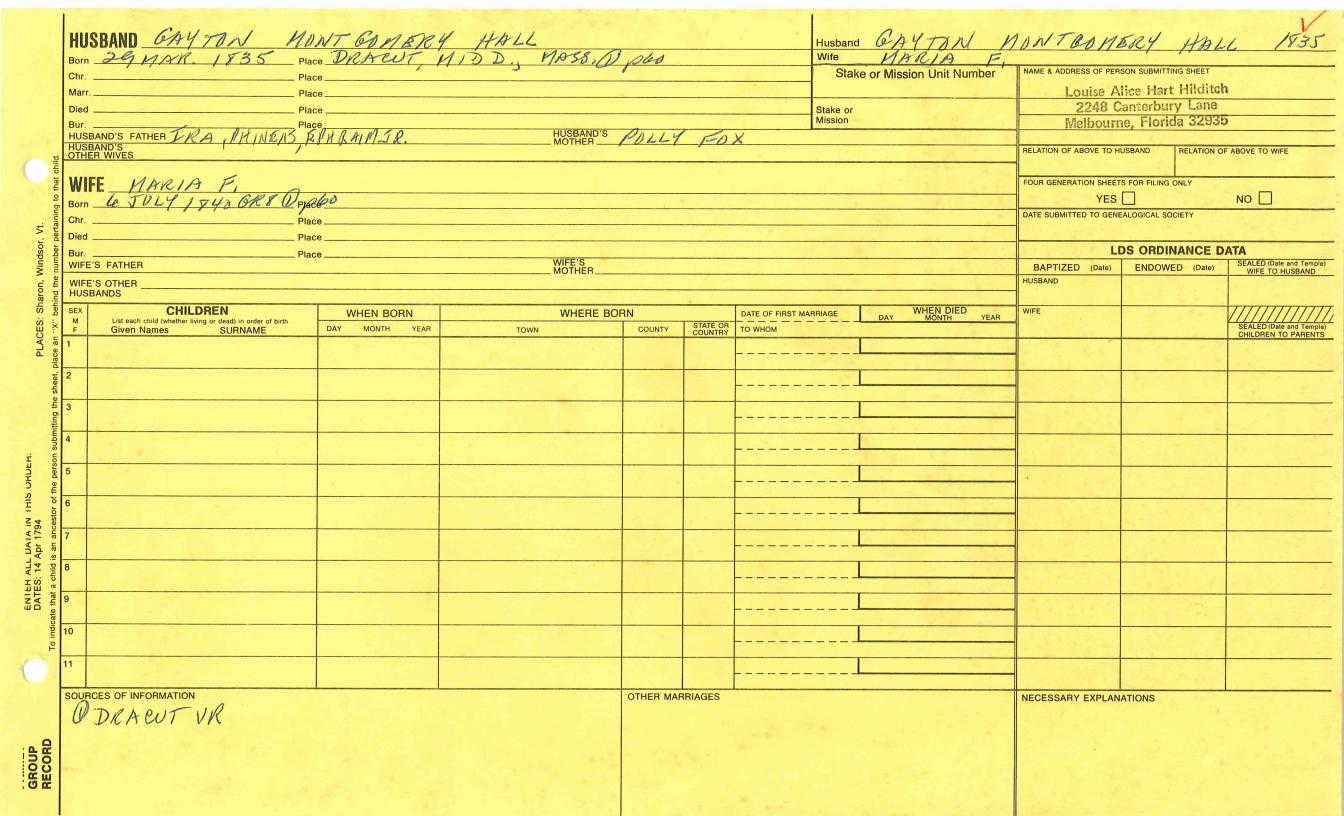 HUSBAND GAYTON MONTGOMERY HALL
Born 29 MAR. 1835 Place DRACUT, MIDD., MASS. ① p60
Chr. Place
Marr. Place
Died Place
Bur. Place
HUSBAND'S FATHER IRA, PHINEAS, EPHRAIM JR. HUSBAND'S MOTHER POLLY FOX
HUSBAND'S OTHER WIVES
Husband GAYTON MONTGOMERY HALL 1835
Wife MARIA F.
Stake or Mission Unit Number
Stake or Mission
NAME & ADDRESS OF PERSON SUBMITTING SHEET
Louise Alice Hart Hilditch
2248 Canterbury Lane
Melbourne, Florida 32935
RELATION OF ABOVE TO HUSBAND RELATION OF ABOVE TO WIFE
FOUR GENERATION SHEETS FOR FILING ONLY
YES NO
DATE SUBMITTED TO GENEALOGICAL SOCIETY
WIFE MARIA F.
Born 6 JULY 1840 GR8 ① Place p60
Chr. Place
Died Place
Bur. Place
WIFE'S FATHER WIFE'S MOTHER
WIFE'S OTHER HUSBANDS
LDS ORDINANCE DATA
BAPTIZED (Date) ENDOWED (Date) SEALED (Date and Temple) WIFE TO HUSBAND
HUSBAND
WIFE
SEALED (Date and Temple) CHILDREN TO PARENTS
SEX M F
CHILDREN
List each child (whether living or dead) in order of birth
Given Names SURNAME
WHEN BORN
DAY MONTH YEAR
WHERE BORN
TOWN COUNTY STATE OR COUNTRY
DATE OF FIRST MARRIAGE
TO WHOM
WHEN DIED
DAY MONTH YEAR
1
2
3
4
5
6
7
8
9
10
11
SOURCES OF INFORMATION
① DRACUT VR
OTHER MARRIAGES
NECESSARY EXPLANATIONS
ENTER ALL DATA IN THIS ORDER:
DATES: 14 Apr 1794
PLACES: Sharon, Windsor, Vt.
To indicate that a child is an ancestor of the person submitting the sheet, place an "X" behind the number pertaining to that child.
GROUP
RECORD